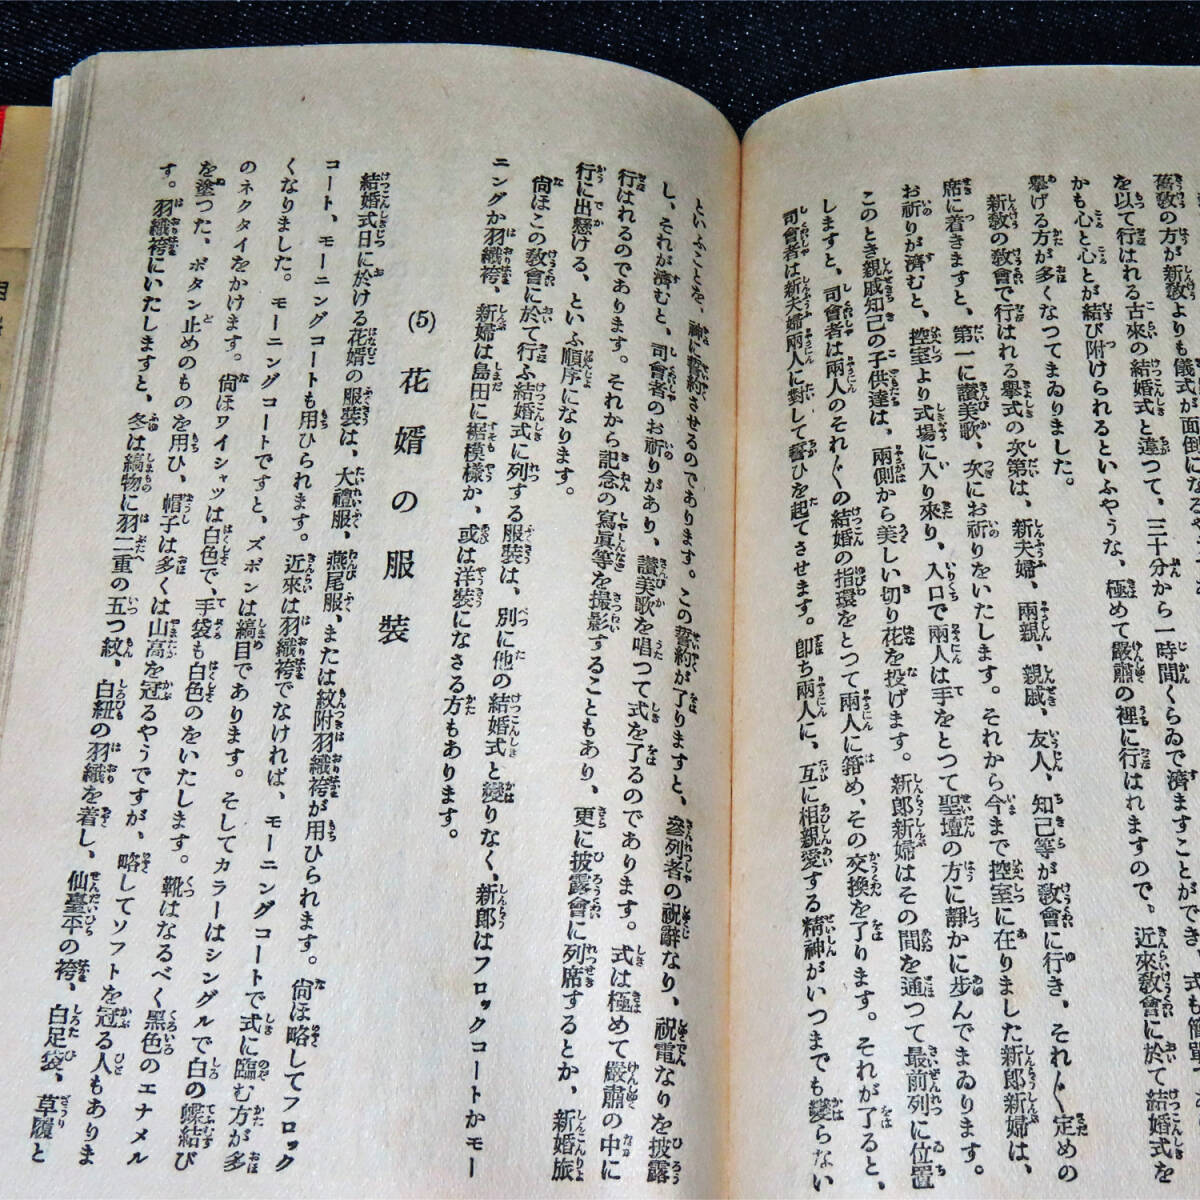 舊敎の方が新敎よりも儀式が面倒になる
を以て行はれる古來の結婚式と違つて、三十分から一時間くらゐで濟ますことができ、式も簡單で
かも心と心とが結び附けられるといふやうな、極めて嚴肅の裡に行はれますので。近來敎會に於て結婚式を
擧げる方が多くなつてまゐりました。
新敎の敎會で行はれる擧式の次第は、新夫婦、兩親、親戚、友人、知己等が敎會に行き、それ〴〵定めの
席に着きますと、第一に讃美歌、次にお祈りをいたします。それから今まで控室に在りました新郞新婦は、
お祈りが濟むと、控室より式場に入り來り、入口で兩人は手をとつて聖壇の方に靜かに步んでまゐります。
このとき親戚知己の子供達は、兩側から美しい切り花を投げます。新郞新婦はその間を通つて最前列に位置
しますと、司會者は兩人のそれ〴〵の結婚の指環をとつて兩人に箝め、その交換を了ります。それが了ると、
司會者は新夫婦兩人に對して誓ひを起てさせます。卽ち兩人に、互に相親愛する精神がいつまでも變らない
といふことを、神に誓約させるのであります。この誓約が了りますと、參列者の祝辭なり、祝電なりを披露
し、それが濟むと、司會者のお祈りがあり、讃美歌を唱つて式を了るのであります。式は極めて嚴肅の中に
行はれるのであります。それから記念の寫眞等を撮影することもあり、更に披露會に列席するとか、新婚旅
行に出懸ける、といふ順序になります。
尙ほこの敎會に於て行ふ結婚式に列する服裝は、別に他の結婚式と變りなく、新郞はフロックコートかモー
ニングか羽織袴、新婦は島田に裾模樣か、或は洋裝になさる方もあります。
(5) 花婿の服裝
結婚式日に於ける花婿の服裝は、大禮服、燕尾服、または紋附羽織袴が用ひられます。尙ほ略してフロック
コート、モーニングコートも用ひられます。近來は羽織袴でなければ、モーニングコートで式に臨む方が多
くなりました。モーニングコートですと、ズボンは縞目であります。そしてカラーはシングルで白の蝶結び
のネクタイをかけます。尙ほワイシャツは白色で、手袋も白色のをいたします。靴はなるべく黑色のエナメル
を塗つた、ボタン止めのものを用ひ、帽子は多くは山高を冠るやうですが、略してソフトを冠る人もありま
す。羽織袴にいたしますと、冬は縞物に羽二重の五つ紋、白紐の羽織を着し、仙臺平の袴、白足袋、草履と